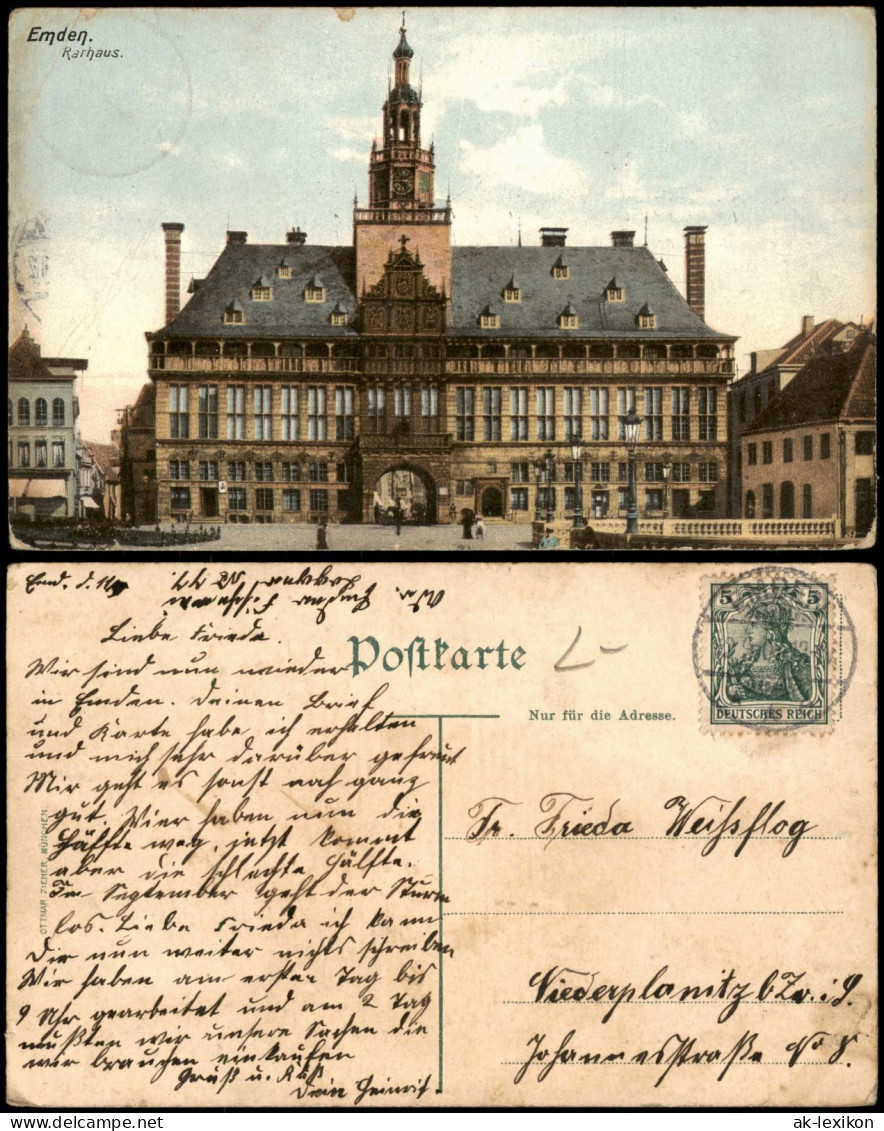 Emden.
Rathaus.
Emd. d.
Liebe Frieda.
Wir sind nun wieder
in Emden. Deinen Brief
und Karte habe ich erhalten
und mich sehr darüber gefreut
Mir geht es sonst noch ganz
gut. Wier haben nun die
Hälfte weg, jetzt kommt
aber die schlechte Hälfte.
Im September geht der Sturm
los. Liebe Frieda ich kann
Dir nun weiter nichts schreiben
Wir haben am ersten Tag bis
9 Uhr gearbeitet und am 2 Tag
mußten wir unsere Sachen die
wir brauchen einkaufen
Gruß u. Kuß
Dein Heinrich
Postkarte
Nur für die Adresse.
5 5
DEUTSCHES REICH
OTTMAR ZIEHER, MÜNCHEN
Fr. Frieda Weißflog
Niederplanitz b Zw. i. S.
Johannesstraße No 8.
ak-lexikon